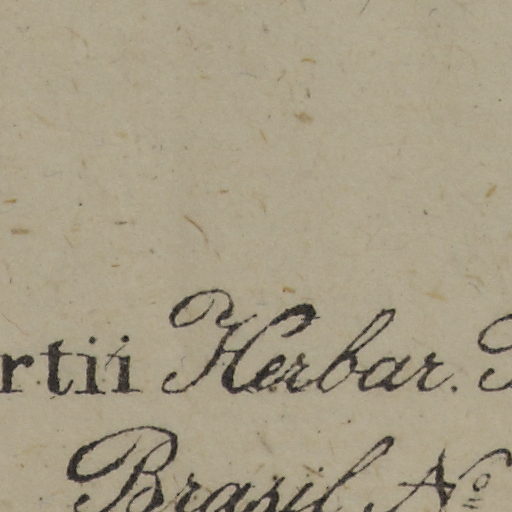 rtii Herbar.
Brasil Nº